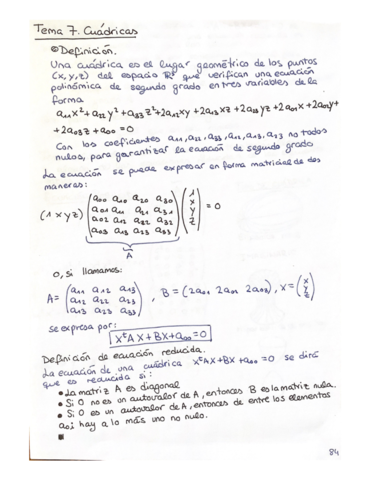 Tema 7. Cuádricas
Definición.
Una cuádrica es el lugar geométrico de los puntos
(x,y,z) del espacio R³ que verifican una ecuación
polinómica de segundo grado en tres variables de la
forma
a₁₁x²+a₂₂y²+a₃₃z²+2a₁₂xy+2a₁₃xz+2a₂₃yz+2a₀₁x+2a₀₂y+
+2a₀₃z+a₀₀=0
Con los coeficientes a₁₁,a₂₂,a₃₃,a₁₂,a₁₃,a₂₃ no todos
nulos, para garantizar la ecuación de segundo grado
La ecuación se puede expresar en forma matricial de dos
maneras:
(1 x y z) (a₀₀ a₁₀ a₂₀ a₃₀ 1
a₀₁ a₁₁ a₂₁ a₃₁ x
a₀₂ a₁₂ a₂₂ a₃₂ y
a₀₃ a₁₃ a₂₃ a₃₃) z = 0
A
o, si llamamos:
A = (a₁₁ a₁₂ a₁₃
a₁₂ a₂₂ a₂₃
a₁₃ a₂₃ a₃₃), B = (2a₀₁ 2a₀₂ 2a₀₃), x = (x y z)
se expresa por:
XᵗAX+BX+a₀₀=0
Definición de ecuación reducida.
La ecuación de una cuádrica XᵗAX+BX+a₀₀=0 se dirá
que es reducida si:
• La matriz A es diagonal
• Si 0 no es un autovalor de A, entonces B es la matriz nula.
• Si 0 es un autovalor de A, entonces de entre los elementos
a₀ᵢ hay a lo más uno no nulo.
84